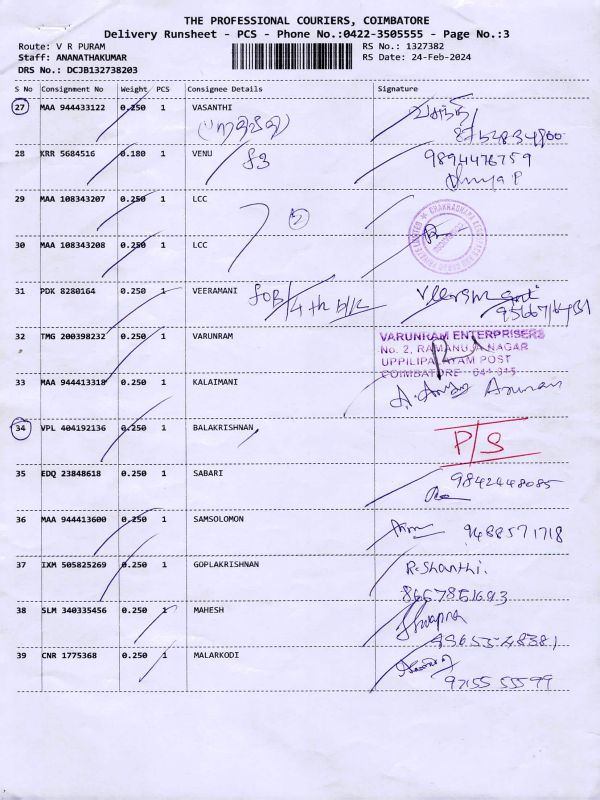 THE PROFESSIONAL COURIERS, COIMBATORE
Delivery Runsheet - PCS - Phone No.:0422-3505555 - Page No.:3
Route: V R PURAM
RS No.: 1327382
Staff: ANANATHAKUMAR
RS Date: 24-Feb-2024
DRS No.: DCJB132738203
S No Consignment No Weight PCS Consignee Details Signature
27 MAA 944433122 0.250 1 VASANTHI
28 KRR 5684516 0.180 1 VENU 83 9894476759
Dhivya P
29 MAA 108343207 0.250 1 LCC
30 MAA 108343208 0.250 1 LCC
31 PDK 8280164 0.250 1 VEERAMANI
32 TMG 200398232 0.250 1 VARUNRAM
VARUNRAM ENTERPRISERS
No. 2, RAMANUJA NAGAR
UPPILIPALAYAM POST
COIMBATORE - 641 015
33 MAA 944413318 0.250 1 KALAIMANI
34 VPL 404192136 0.250 1 BALAKRISHNAN P/S
35 EDQ 23848618 0.250 1 SABARI 9842448085
36 MAA 944413600 0.250 1 SAMSOLOMON 9488571718
37 IXM 505825269 0.250 1 GOPLAKRISHNAN R. Shanthi.
38 SLM 340335456 0.250 1 MAHESH Swapna
39 CNR 1775368 0.250 1 MALARKODI
97155 55599